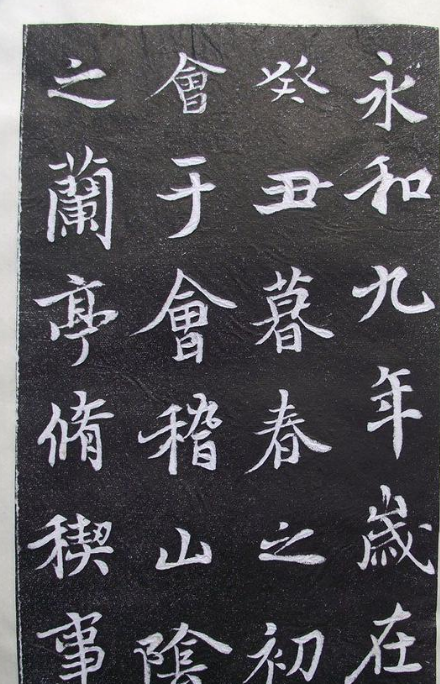 永和九年歲在
癸丑暮春之初
會于會稽山陰
之蘭亭脩稧事